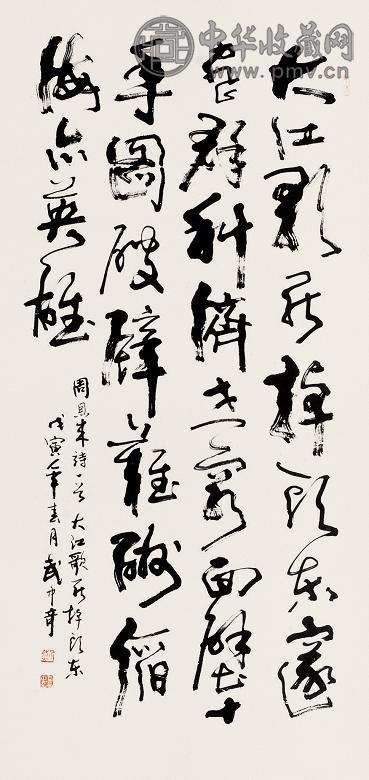 中华收藏网
www.pmv.cn
大江歌罷掉頭東邃
密群科濟世窮面壁十
年圖破壁難酬蹈
海亦英雄
周恩来詩一首 大江歌罷掉頭東
戊寅年春月武中奇